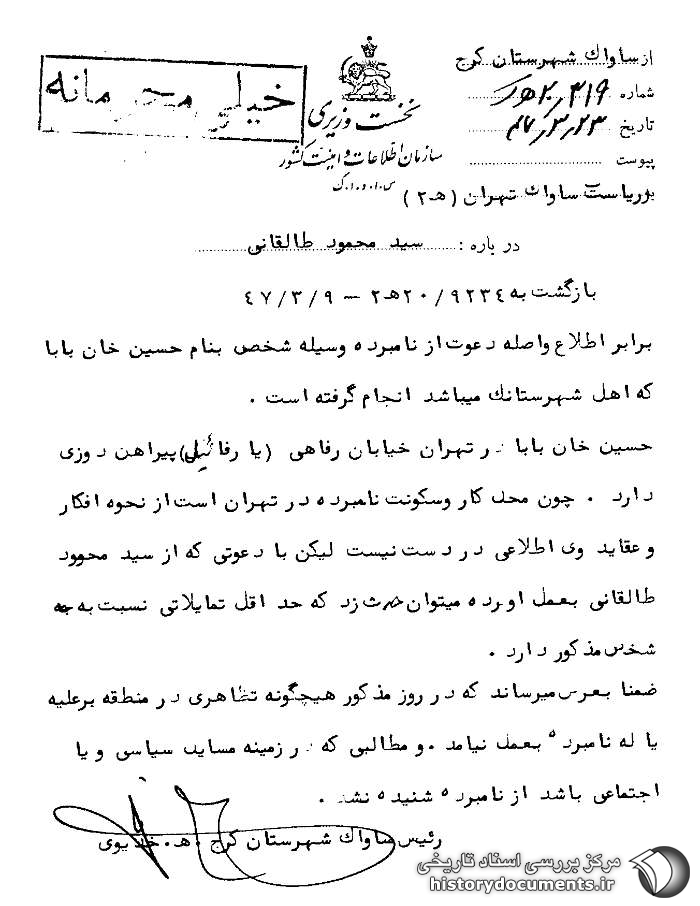 خیلی محرمانه
نخست وزیری
سازمان اطلاعات و امنیت کشور
س.ا.و.ا.ک
از ساواك شهرستان کرج
شماره ۲۰۴۱۹/ هـ ك
تاریخ ۴۷/۳/۲۳
پیوست
بریاست ساواك تهران (هـ ۲)
در باره : سید محمود طالقانی
بازگشت به ۹۲۳٤/ ۲۰هـ۲ – ٤۷/۳/۹
برابر اطلاع واصله دعوت از نامبرده وسیله شخصی بنام حسین خان بابا
که اهل شهرستانك میباشد انجام گرفته است .
حسین خان بابا در تهران خیابان رفاهی (یا رفائیل) پیراهن دوزی
دارد . چون محل کار وسکونت نامبرده در تهران است از نحوه افکار
و عقاید وی اطلاعی در دست نیست لیکن با دعوتی که از سید محمود
طالقانی بعمل اورده میتوان حدث زد که حد اقل تمایلاتی نسبت به
شخص مذکور دارد .
ضمنا بعرض میرساند که در روز مذکور هیچگونه تظاهری در منطقه برعلیه
یا له نامبرده بعمل نیامد .و مطالبی که در زمینه مسایل سیاسی و یا
اجتماعی باشد از نامبرده شنیده نشد .
رئیس ساواك شهرستان کرج .هـ. خدیوی
مرکز بررسی اسناد تاریخی
historydocuments.ir